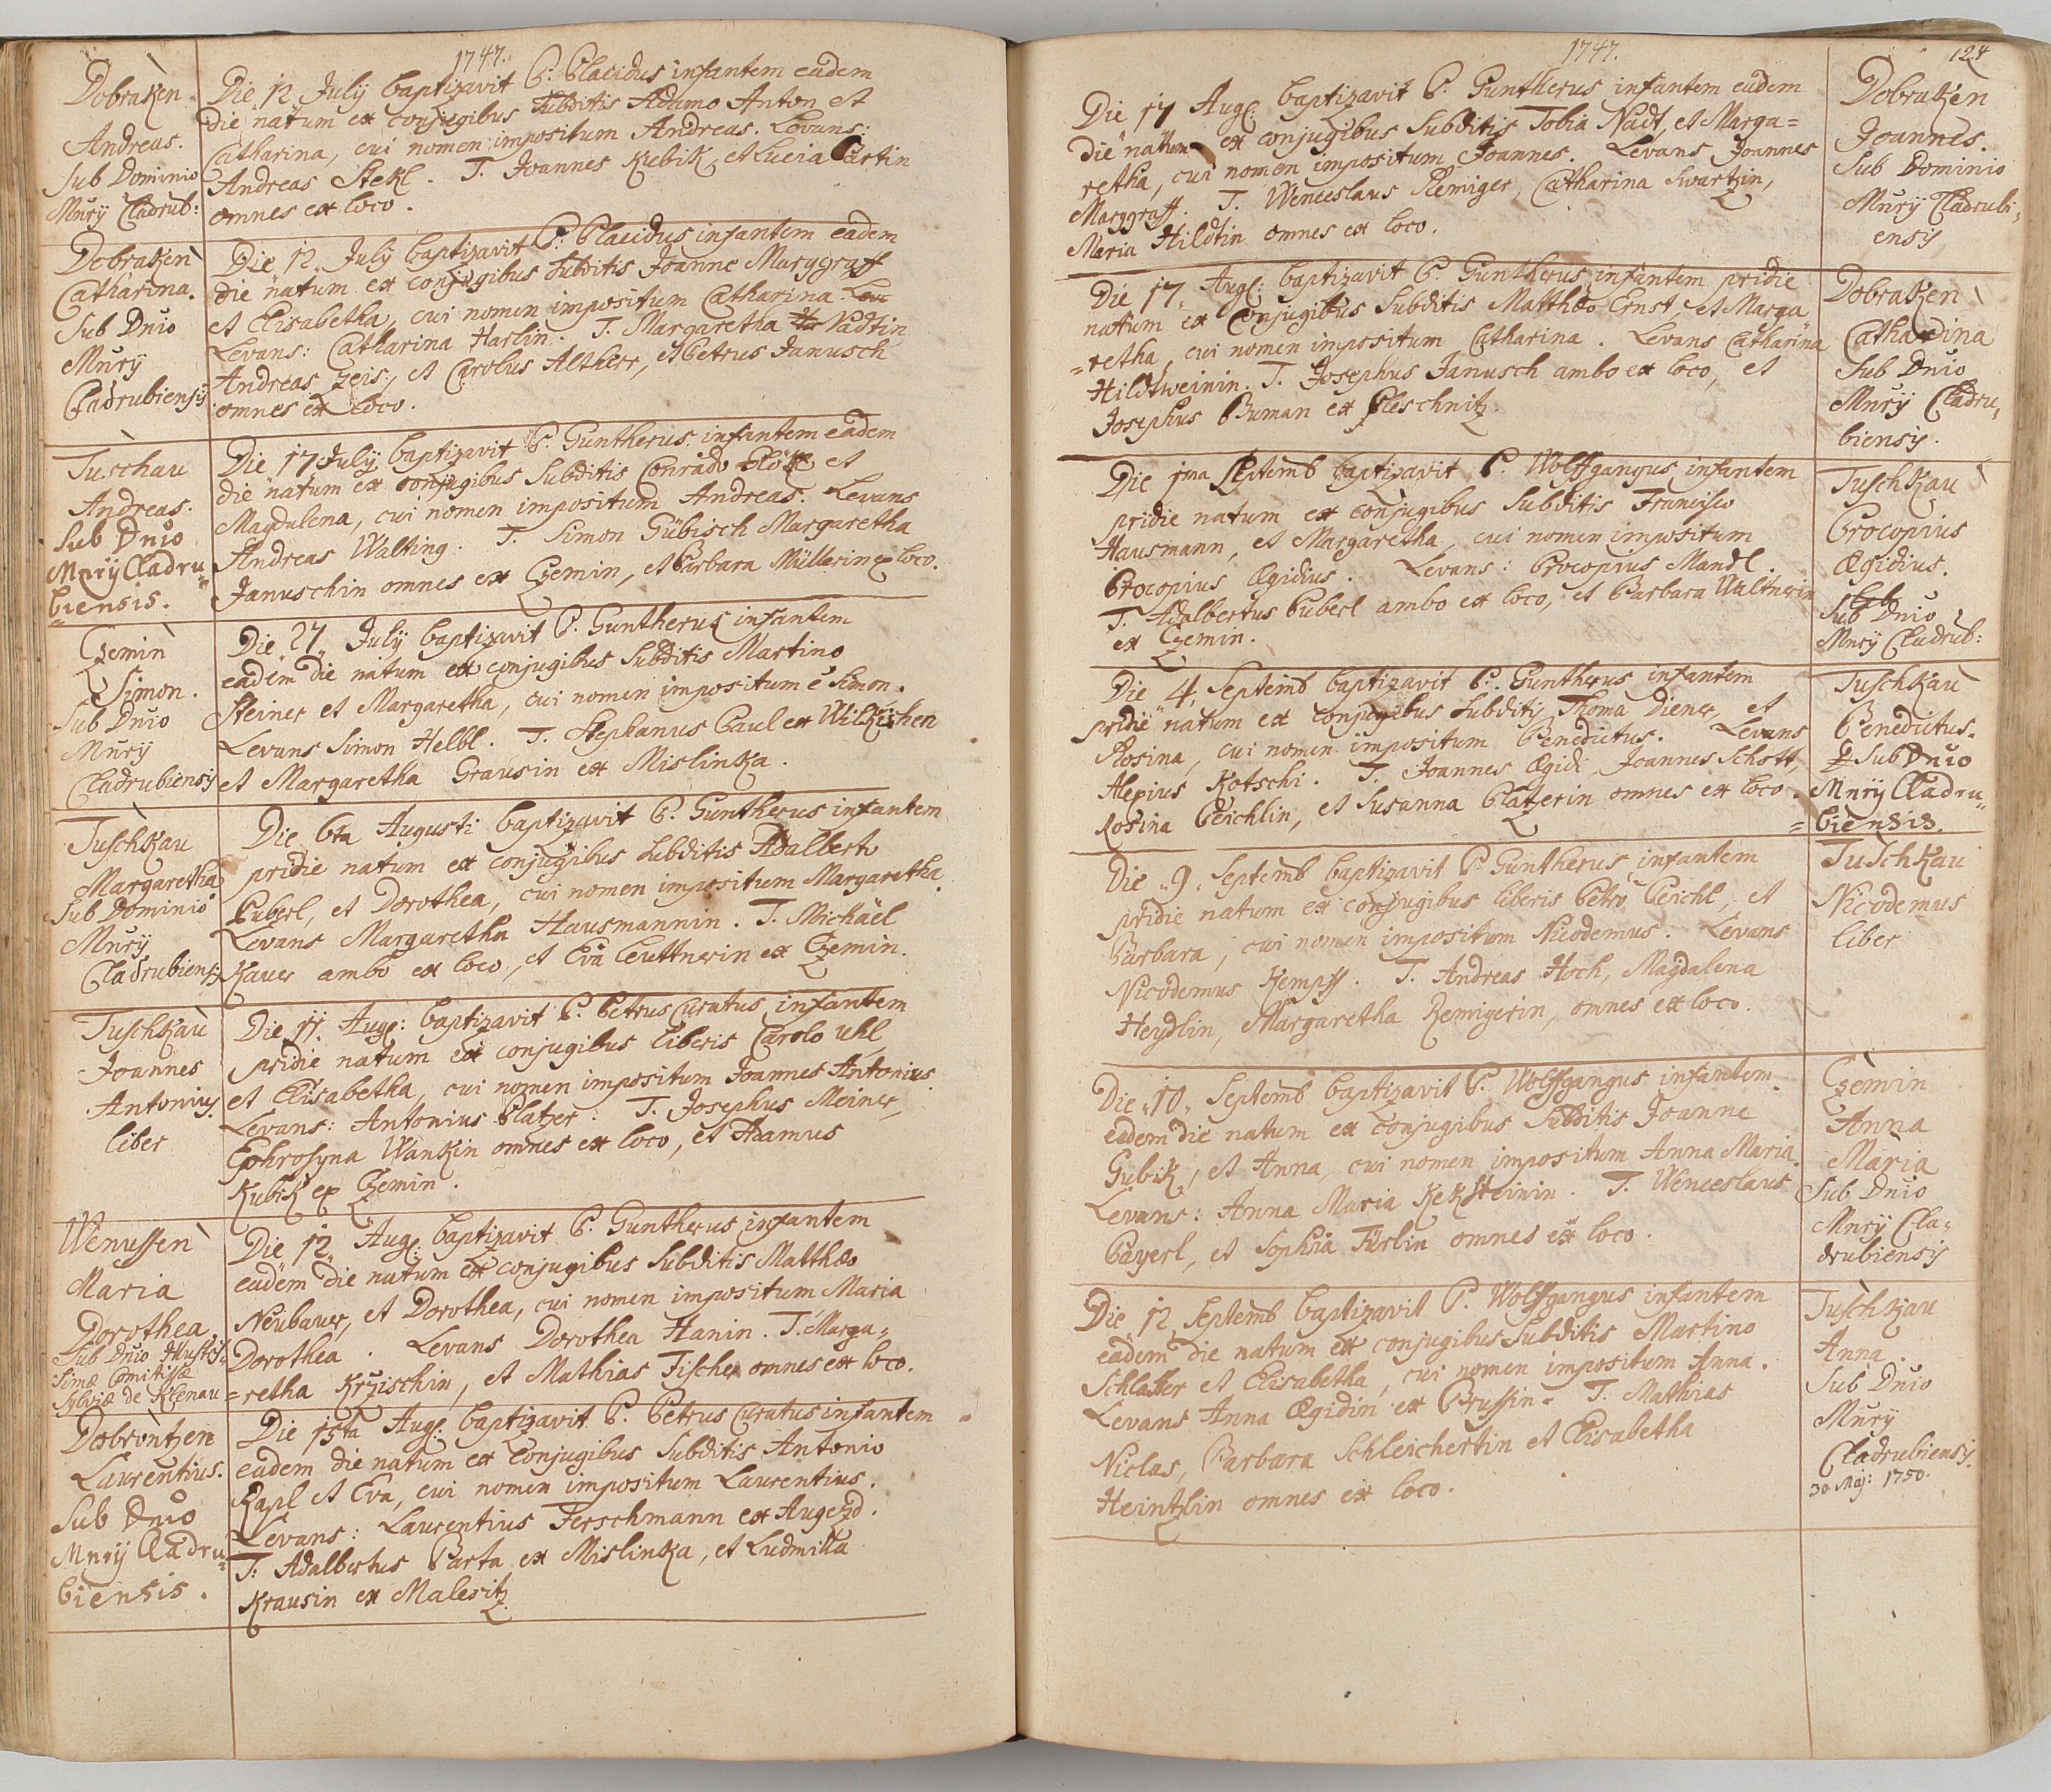 1747.
Dobraken
Andreas.
Sub Dominio
Mnrÿ Cladrub:
Die 12 Julÿ baptizavit P: Placidus infantem eadem
die natum ex conjugibus subditis Adamo Anton et
Catharina, cui nomen impositum Andreas. Levans:
Andreas Stekl. T. Joannes Kubik, et Lucia
omnes ex loco.
Dobraken
Catharina.
Sub Dnio
Mnrÿ
Cladrubiensis
Die 12 Julÿ baptizavit P: Placidus infantem eadem
die natum ex conjugibus subditis Joanne Marggraff
et Elisabetha, cui nomen impositum Catharina.
Levans: Catharina Harlin. T. Margaretha Nadtin
Andreas Zeis, et Carolus Altherr, et Petrus Janusch
omnes ex loco.
Tuschau
Andreas.
Sub Dnio
Mnrÿ Cladru
biensis.
Die 17 Julÿ baptizavit P. Guntherus infantem eadem
die natum ex conjugibus Subditis Conrado et
Magdalena, cui nomen impositum Andreas. Levans
Andreas Walting. T. Simon Gübisch Margaretha
Januschin omnes ex Czemin, et Barbara Müllerin ex loco.
Czemin
Simon.
Sub Dnio
Mnrÿ
Cladrubiensis
Die 27 Julÿ baptizavit P. Guntherus infantem
eadem die natum ex conjugibus Subditis Martino
Steiner et Margaretha, cui nomen impositum è Simon.
Levans Simon Helbl. T. Stephanus Paul ex Wilkischen
et Margaretha Grausin ex Mislinka.
Tuschkau
Margaretha
Sub Dominio
Mnrÿ
Cladrubiensis
Die 6ta Augusti baptizavit P. Guntherus infantem
pridie natum ex conjugibus subditis Adalberto
Puberl, et Dorothea, cui nomen impositum Margaretha.
Levans Margaretha Hausmannin. T. Michäel
Kauer ambo ex loco, et Eva Leuttnerin ex Czemin.
Tuschkau
Joannes
Antonius
liber
Die 11. Aug: baptizavit P. Petrus Curatus infantem
pridie natum ex conjugibus liberis Carolo Uhl,
et Elisabetha, cui nomen impositum Joannes Antonius.
Levans: Antonius Platzer. T. Josephus Meiner,
Ephrosyna Wankin omnes ex loco, et Adamus
Kubik ex Czemin.
Wenussen
Maria
Dorothea
Sub Dnio Illustris
simæ Comitissæ
Sylviæ de Klenau
Die 12 Aug: baptizavit P. Guntherus infantem
eadem die natum ex conjugibus Subditis Matthæo
Neubauer, et Dorothea, cui nomen impositum Maria
Dorothea. Levans Dorothea Hanin. T. Marga=
=retha Krzischin, et Mathias Fischer omnes ex loco.
Dobrontzen
Laurentius.
Sub Dnio
Mnrÿ Cladru
biensis.
Die 15ta Aug: baptizavit P. Petrus Curatus infantem
eadem die natum ex Conjugibus Subditis Antonio
Rapl et Eva, cui nomen impositum Laurentius.
Levans: Laurentius Ferschmann ex Augezd.
T: Adalbertus Parta ex Mislinka, et Ludmilla
Krausin ex Malesitz
1747.
124
Die 17 Aug: baptizavit P. Guntherus infantem eadem
die natum ex conjugibus Subditis Tobia Nadt, et Marga=
retha, cui nomen impositum Joannes. Levans Joannes
Marggraff. T. Wenceslaus Remiger, Catharina Swartzin,
Maria Hildtin omnes ex loco.
Dobraken
Joannes.
Sub Dominio
Mnrÿ Cladrubi=
ensis
Die 17 Aug: baptizavit P. Guntherus infantem pridie
natum ex Conjugibus Subditis Matthæo Ernst, et Marga
=retha, cui nomen impositum Catharina. Levans Catharina
Hildtweinin. T. Josephus Janusch ambo ex loco, et
Josephus Buman ex Pleschnitz.
Dobraken
Catharina
Sub Dnio
Mnrÿ Cladru,
biensis.
Die 1ma Septemb baptizavit P. Wolffgangus infantem
pridie natum ex conjugibus Subditis Francisco
Hausmann, et Margaretha, cui nomen impositum
Procopius Ægidius. Levans: Procopius Mandl.
T. Adalbertus Puberl ambo ex loco, et Barbara Waltnerin
ex Czemin.
Tuschkau
Procopius
Ægidius.
Sub Dnio
Mnrÿ Cladrub:
Die 4 Septemb baptizavit P. Guntherus infantem
pridie natum ex conjugibus subditis Thoma Diener, et
Rosina, cui nomen impositum Benedictus. Levans
Alexius Kotschi. T. Joannes Ægidi, Joannes Schott,
Rosina Peichlin, et Susanna Platzerin omnes ex loco.
Tuschkau
Benedictus.
Sub Dnio
Mnrÿ Cladru
=biensis.
Die 9 Septemb baptizavit P. Guntherus infantem
pridie natum ex conjugibus liberis Petro Peichl, et
Barbara, cui nomen impositum Nicodemus. Levans
Nicodemus Kempff. T. Andreas Hoch, Magdalena
Heydlin, Margaretha Remigerin, omnes ex loco.
Tuschkau
Nicodemus
liber
Die 10 Septemb baptizavit P. Wolffgangus infantem
eadem die natum ex conjugibus Subditis Joanne
Gubik, et Anna, cui nomen impositum Anna Maria.
Levans: Anna Maria Keksteinin. T. Wenceslaus
Payerl, et Sophia Fürlin omnes ex loco.
Czemin
Anna
Maria
Sub Dnio
Mnrÿ Cla=
drubiensis
Die 12 Septemb baptizavit P. Wolffgangus infantem
eadem die natum ex conjugibus Subditis Martino
Schlatter et Elisabetha, cui nomen impositum Anna.
Levans Anna Ægidin ex Prussin. T. Mathias
Niclas, Barbara Schleichertin et Elisabetha
Heintzlin omnes ex loco.
Tuschkau
Anna
Sub Dnio
Mnrÿ
Cladrubiensis.
30 Maj: 1750.